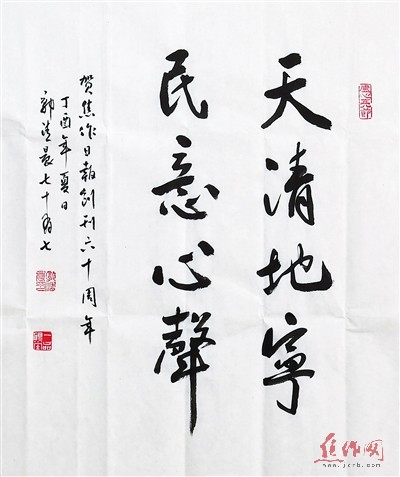 天清地寧
民意心聲
賀焦作日報創刊六十周年
丁酉年夏日
郭清晨七十有七
焦作网
www.jzrb.com